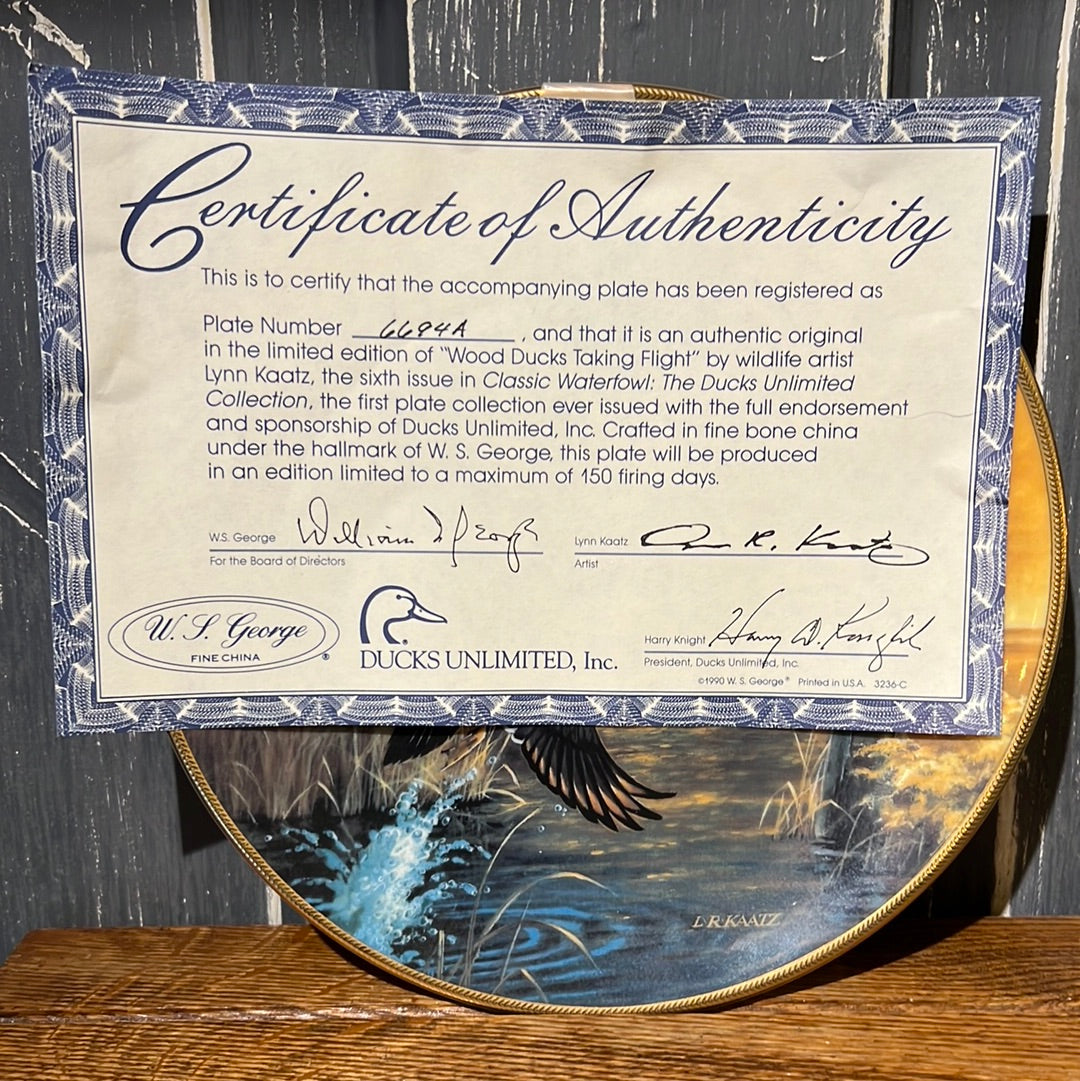 Certificate of Authenticity
This is to certify that the accompanying plate has been registered as
Plate Number 6694A , and that it is an authentic original
in the limited edition of "Wood Ducks Taking Flight" by wildlife artist
Lynn Kaatz, the sixth issue in Classic Waterfowl: The Ducks Unlimited
Collection, the first plate collection ever issued with the full endorsement
and sponsorship of Ducks Unlimited, Inc. Crafted in fine bone china
under the hallmark of W. S. George, this plate will be produced
in an edition limited to a maximum of 150 firing days.
W.S. George William S George
For the Board of Directors
Lynn Kaatz
Artist
W. S. George
FINE CHINA ®
DUCKS UNLIMITED, Inc.
Harry Knight Harry D. Knight
President, Ducks Unlimited, Inc.
©1990 W. S. George® Printed in U.S.A. 3236-C
L·R·KAATZ